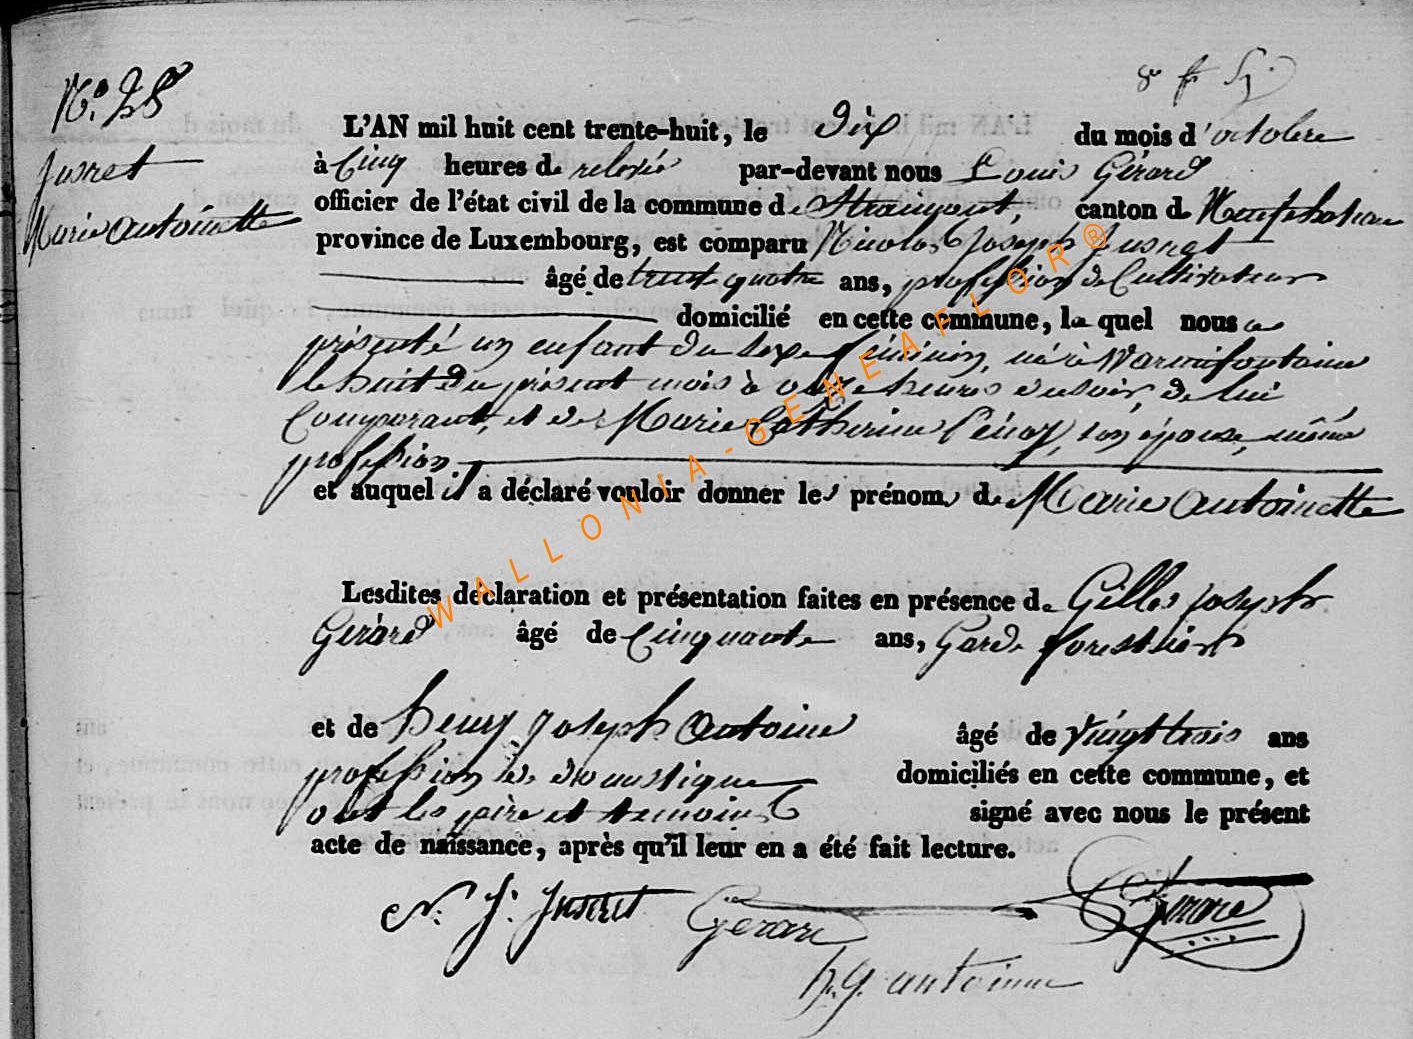 N.° 28
Jusret
Marie Antoinette
L'AN mil huit cent trente-huit, le Dix du mois d'octobre
à Cinq heures de relevée par-devant nous Louis Gérard
officier de l'état civil de la commune de Straimont, canton de Neufchateau
province de Luxembourg, est comparu Nicolas Joseph Jusret
âgé de trente quatre ans, profession de Cultivateur
domicilié en cette commune, lequel nous a
présenté un enfant du sexe féminin, né à Warmifontaine
le huit du présent mois à onze heures du soir, de lui
Comparant, et de Marie Catherine son épouse, même
profession.
et auquel il a déclaré vouloir donner les prénoms de Marie Antoinette
Lesdites déclaration et présentation faites en présence de Gilles Joseph
Gérard âgé de Cinquante ans, Garde forestier
et de henry Joseph Antoine âgé de Vingt trois ans
profession de domestique domiciliés en cette commune, et
ont les père et temoins signé avec nous le présent
acte de naissance, après qu'il leur en a été fait lecture.
N. J. Jusret Gerard Gerard
h. J. antoine
WALLONIA-GENEAFLOR®